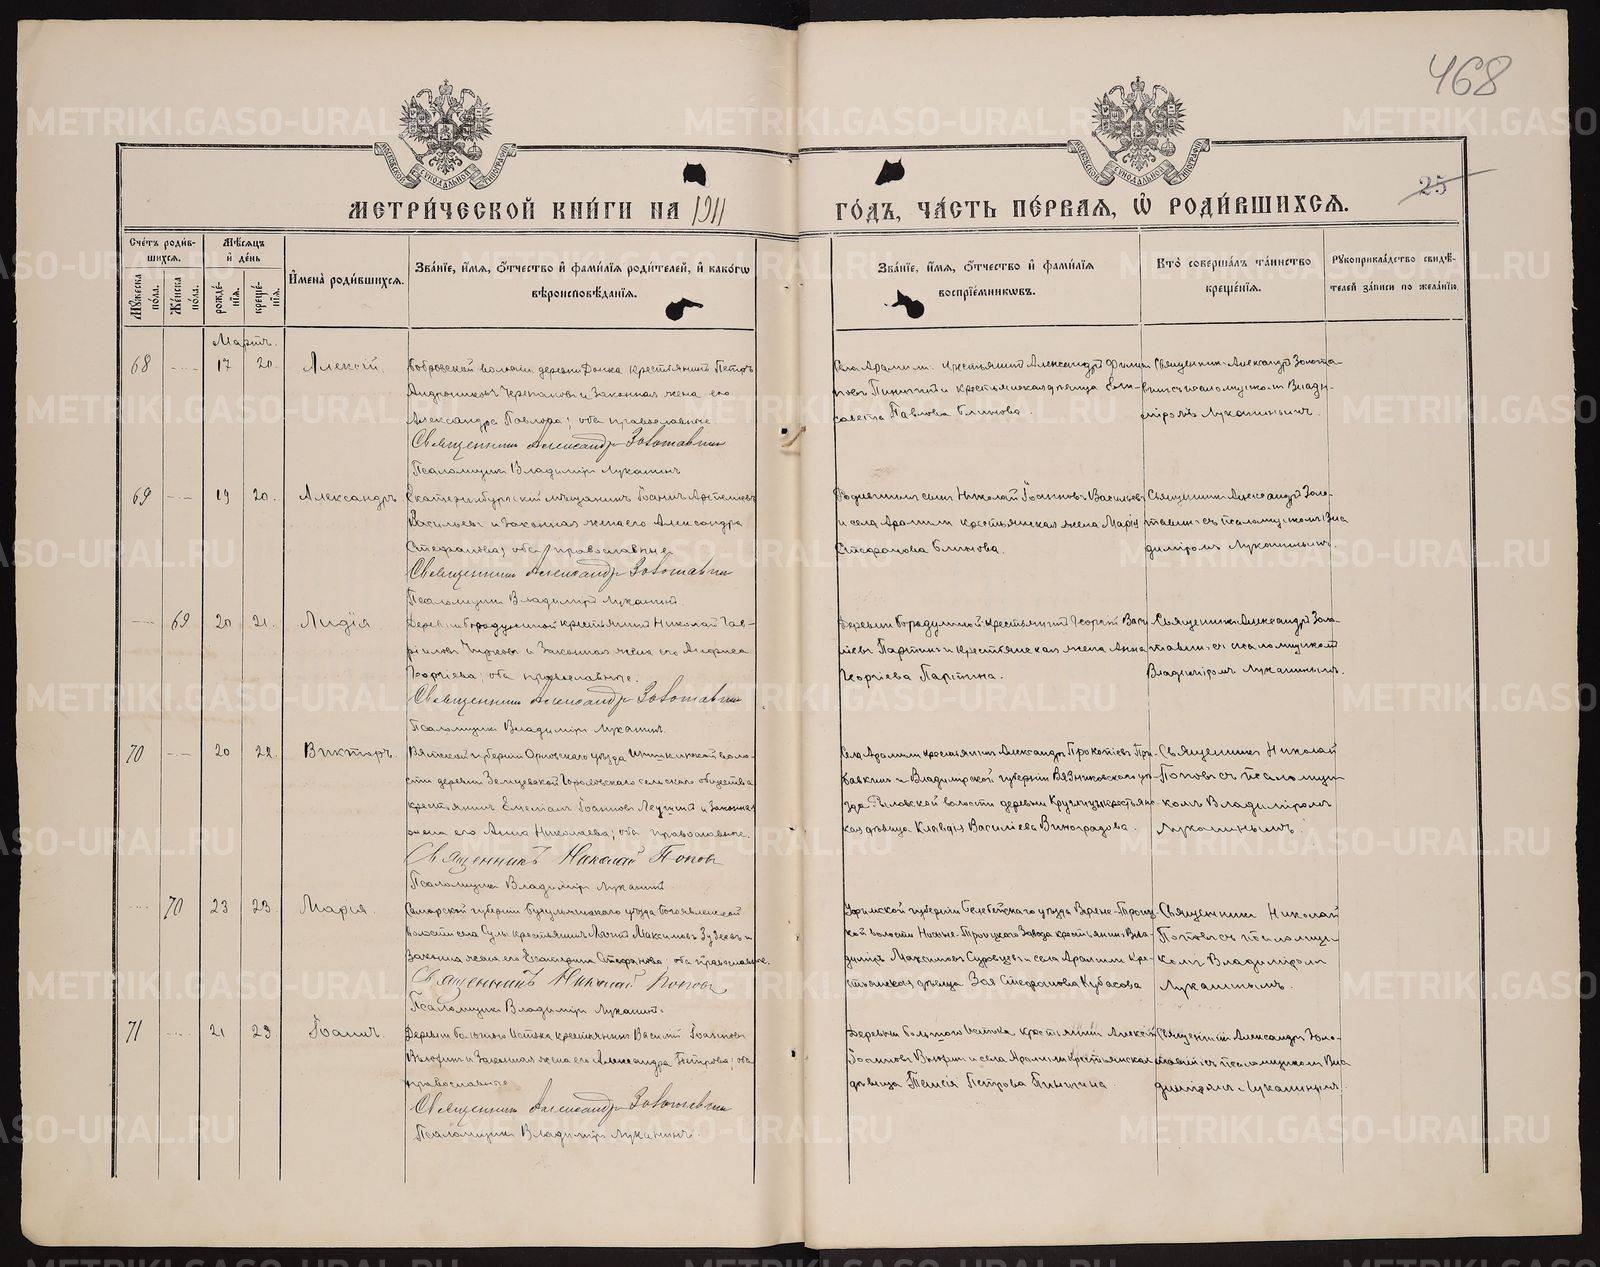 468
25
МОСКОВСКОЙ СѴНОДАЛЬНОЙ ТИПОГРАФІИ
МОСКОВСКОЙ СѴНОДАЛЬНОЙ ТИПОГРАФІИ
МЕТРИ́ЧЕСКОЙ КНИ́ГИ НА 1911
ГО́ДЪ, ЧА́СТЬ ПЕ́РВАѦ, Ѡ҆ РОДИ́ВШИХСѦ.
Сче́тъ роди́в-
шихсѧ.
Мѣ́сѧцъ
и҆ де́нь
Мꙋ́жеска по́ла.
Же́нска по́ла.
рожде́-
нїѧ.
креще́-
нїѧ.
И҆мена̀ роди́вшихсѧ.
Зва́нїе, и҆́мѧ, ѻ҆́тчество и҆ фами́лїѧ роди́телей, и҆ како́гѡ
вѣроисповѣ́данїѧ.
Зва́нїе, и҆́мѧ, ѻ҆́тчество и҆ фами́лїѧ
воспрїе́мникѡвъ.
Кто̀ соверша́лъ та́инство
креще́нїѧ.
Рꙋкоприкла́дство свидѣ́-
телей за́писи по жела́нїю.
Мартъ.
68 17 20. Алексій.
Бобровской волости деревни крестьянинъ Петръ
Андрониковъ Черепановъ и законная жена его
Александра Павлова; оба православные
Священникъ Александръ Золотавинъ
Псаломщикъ Владиміръ Луканинъ
Села Арамили крестьянинъ Александръ
Пиньгинъ и крестьянская девица Ели-
савета Павлова Блинова.
Священникъ Александръ Золота-
винъ съ псаломщикомъ Влади-
міромъ Луканинымъ.
69 19 20. Александръ
Екатеринбургскій мѣщанинъ Іоаннъ Артемьевъ
Васильевъ и законная жена его Александра
Стефанова; оба православные
Священникъ Александръ Золотавинъ
Псаломщикъ Владиміръ Луканинъ
сынъ Николай Іоанновъ Васильевъ
и села Арамили крестьянская жена Марія
Стефанова Блинова.
Священникъ Александръ Золо-
тавинъ съ псаломщикомъ Вла
диміромъ Луканинымъ.
69 20 21. Лидія
Деревни Бородулиной крестьянинъ Николай Гав-
ріиловъ Чирковъ и законная жена его Анфиса
Георгіева; оба православные.
Священникъ Александръ Золотавинъ
Псаломщикъ Владиміръ Луканинъ.
Деревни Бородулиной крестьянинъ Георгій Васи
ліевъ Паргинъ и крестьянская жена Анна
Георгіева Паргина.
Священникъ Александръ Золо-
тавинъ съ псаломщикомъ
Владиміромъ Луканинымъ.
70 20 22. Викторъ.
Вятской губерніи Орловскаго уѣзда воло-
сти деревни сельскаго общества
крестьянинъ Емеліанъ Іоанновъ и законная
жена его Анна Николаева; оба православные.
Священникъ Николай Поповъ
Псаломщикъ Владиміръ Луканинъ.
Села Арамили крестьянинъ Александръ Прокопіевъ При-
бавкинъ и Владимірской губерніи Вязниковскаго уѣ-
зда Рыловской волости деревни крестьянс-
кая дѣвица Клавдія Василіева Виноградова.
Священникъ Николай
Поповъ съ псаломщи-
комъ Владиміромъ
Луканинымъ.
70 23 23. Марія.
Самарской губерніи Бугульминскаго уѣзда Богоявленской
волости села крестьянинъ Максимовъ и
законная жена его Екатерина Стефанова; оба православные.
Священникъ Николай Поповъ
Псаломщикъ Владиміръ Луканинъ.
Уфимской губерніи Белебейскаго уѣзда Верхне-Троиц-
кой волости Нижне-Троицкаго завода крестьянинъ Вла-
диміръ Максимовъ и села Арамили кре-
стьянская дѣвица Зоя Стефанова Кубасова
Священникъ Николай
Поповъ съ псаломщи-
комъ Владиміромъ
Луканинымъ.
71 21 23 Іоаннъ.
Деревни Большого Истока крестьянинъ Василій Іоанновъ
и законная жена его Александра Петрова; оба
православные
Священникъ Александръ Золотавинъ
Псаломщикъ Владиміръ Луканинъ.
Деревни Большого Истока крестьянинъ Алексѣй
Іоанновъ и села Арамили крестьянская
дѣвица Петрова Пиньгина.
Священникъ Александръ Золо-
тавинъ съ псаломщикомъ Вла
диміромъ Луканинымъ.